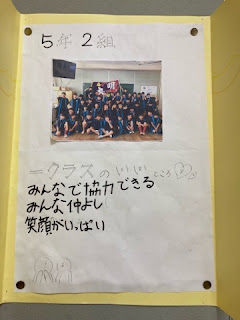 ５年２組
＝クラスのいいところ
みんなで協力できる
みんな仲よし
笑顔がいっぱい